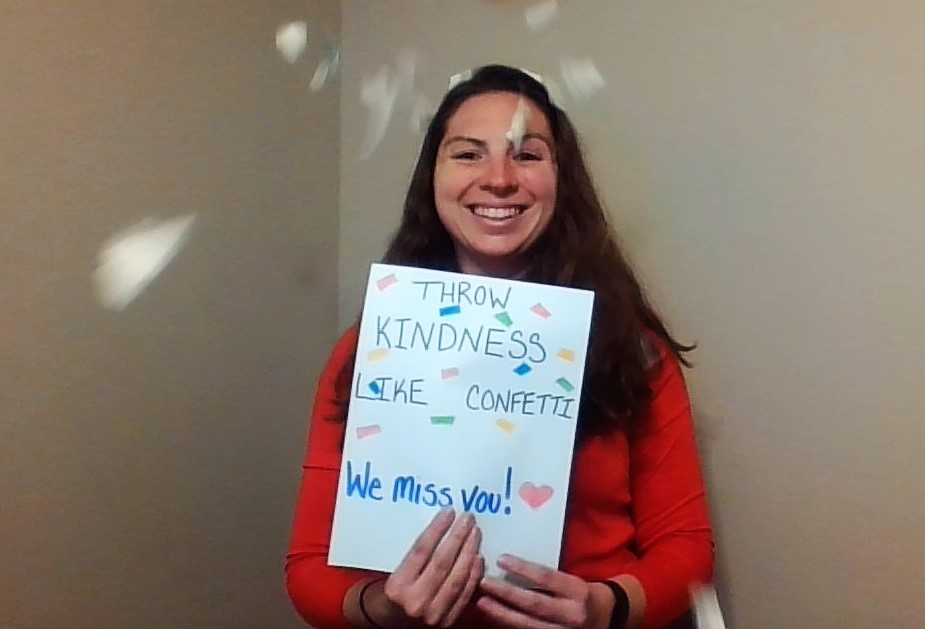 THROW
KINDNESS
LIKE CONFETTI
We miss you!